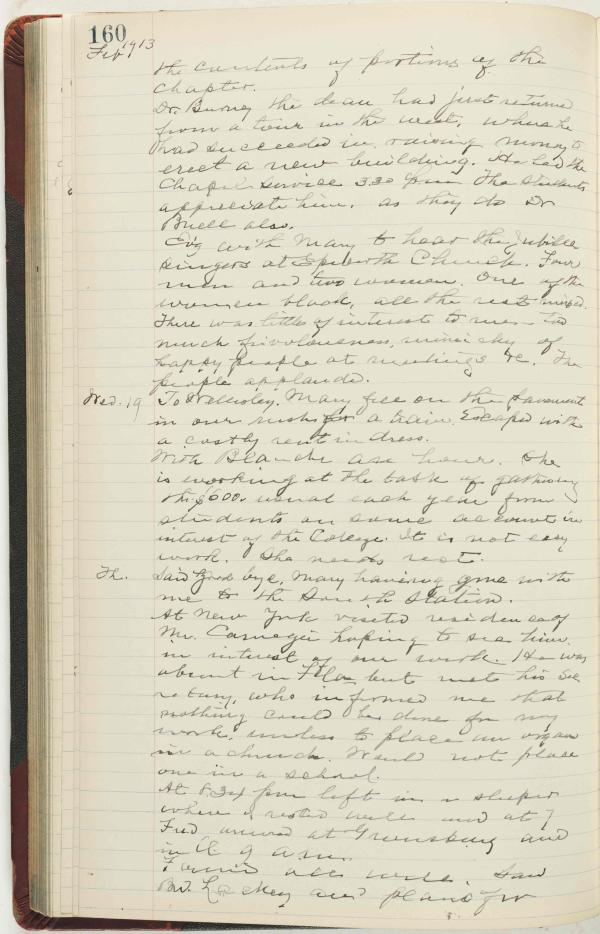 160
Feb 1913
the contents of portions of the
Chapter.
Dr. Burney the dean had just returned
from a tour in the west, where he
had succeeded in raising money to
erect a new building. He led the
Chapel service 3.30 pm The students
appreciate him, as they do Dr
Buell also.
Ev'g with Mary to hear the Jubilee
singers at Epworth Church. Four
men and two women. One of the
women black, all the rest mixed.
There was little of interest to me - too
much frivolousness, mimicry of
happy people at meetings &c. The
people applaud.
Wed. 19 To Wellesley. Mary fell on the pavement
in our rush for a train. Escaped with
a costly rent in dress.
With Blanche an hour. She
is working at the task of gathering
the $600. usual each year from
students on some account in
interest of the College. It is not easy
work. She needs rest.
Th. Said Good bye, Mary having gone with
me to the South Station.
At New York visited residence of
Mr. Carnegie hoping to see him
in interest of our work. He was
absent in Fla but met his Sec
retary, who informed me that
nothing could be done for my
work, unless to place an organ
in a church. Would not place
one in a school.
At 8.34 pm left in a sleeper
where I rested well and at 7
Fri arrived at Greensburg and
in
Found all well. Saw
and plans for